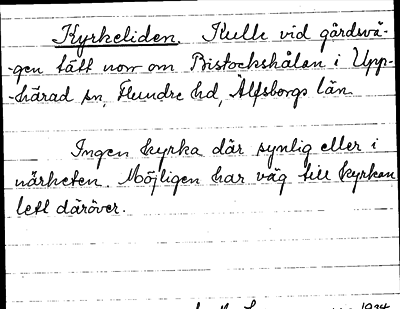 Kyrkeliden. Kulle vid gårdsvä-
-gen tätt norr om Bistockshålan i Upp-
-härad sn, Flundre hd, Älfsborgs län
Ingen kyrka där synlig eller i
närheten. Möjligen har väg till kyrkan
lett däröver.
1934